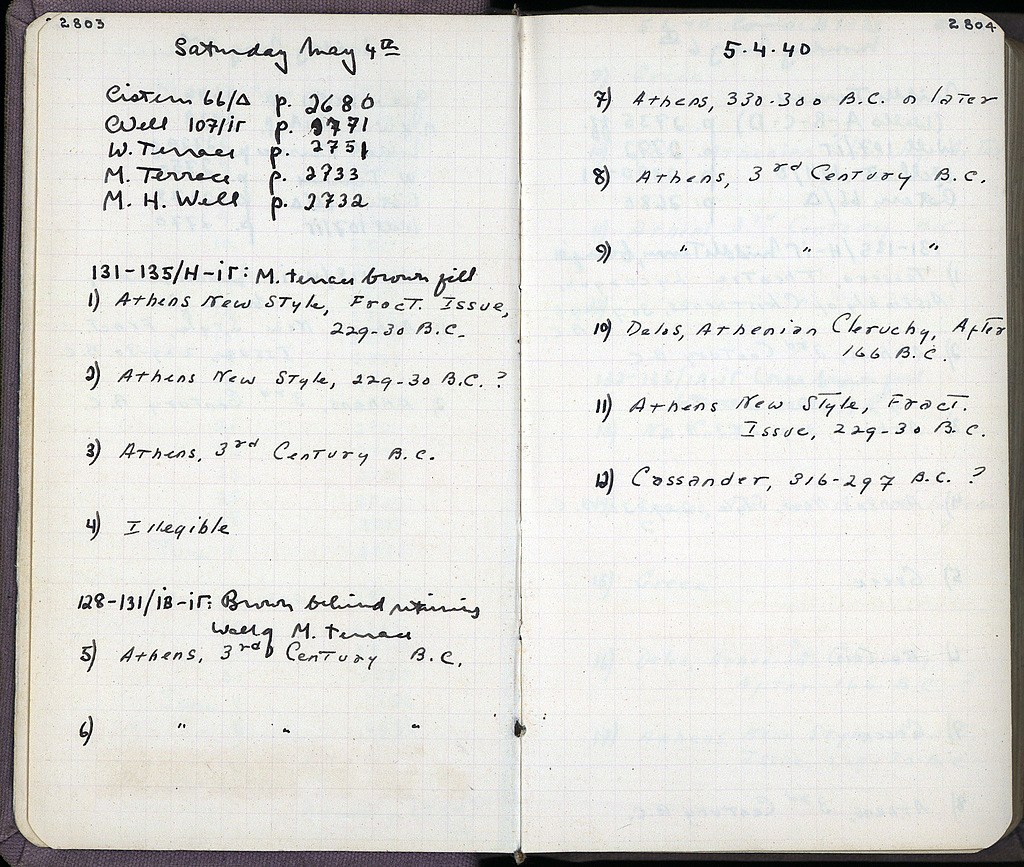 2803
Saturday May 4th
Cistern 66/Δ p. 2680
Well 107/ΙΓ p. 2771
W. Terrace p. 2751
M. Terrace p. 2733
M. H. Well p. 2732
131-135/H-ΙΓ: M. terrace brown fill
1) Athens New Style, Fract. Issue,
229-30 B.C.
2) Athens New Style, 229-30 B.C. ?
3) Athens, 3rd Century B.C.
4) Illegible
128-131/ΙΒ-ΙΓ: Brown behind retaining
Wall of M. terrace
5) Athens, 3rd Century B.C.
6) " " "
2804
5.4.40
7) Athens, 330-300 B.C. or later
8) Athens, 3rd Century B.C.
9) " " "
10) Delos, Athenian Cleruchy, After
166 B.C.
11) Athens New Style, Fract.
Issue, 229-30 B.C.
12) Cassander, 316-297 B.C. ?